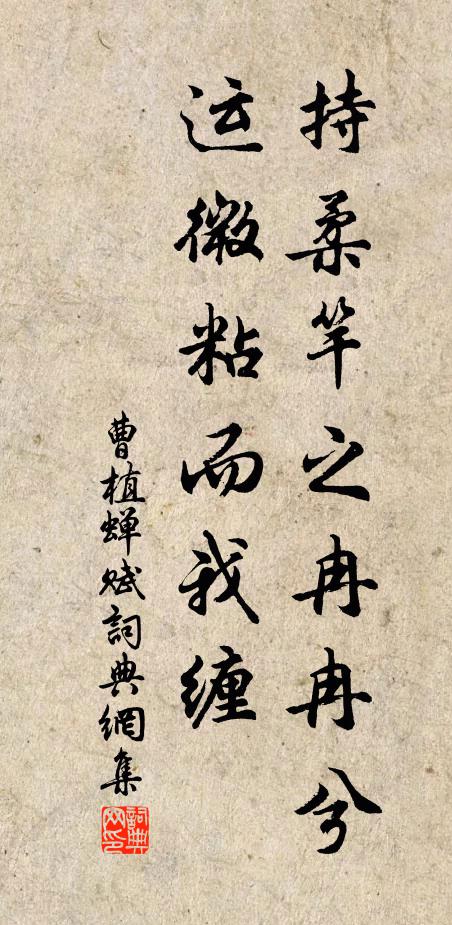 持柔竿之冉冉兮
运微粘而我缠
曹植蝉赋詞典網集
詞典网印